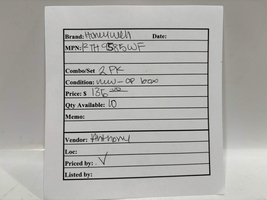 Brand: Honeywell Date:
MPN: RTH9585WF
Combo/Set 2 PK
Condition: new-op box
Price: $ 135 00
Qty Available: 10
Memo:
Vendor: Anthony
Loc:
Priced by: ✓
Listed by: